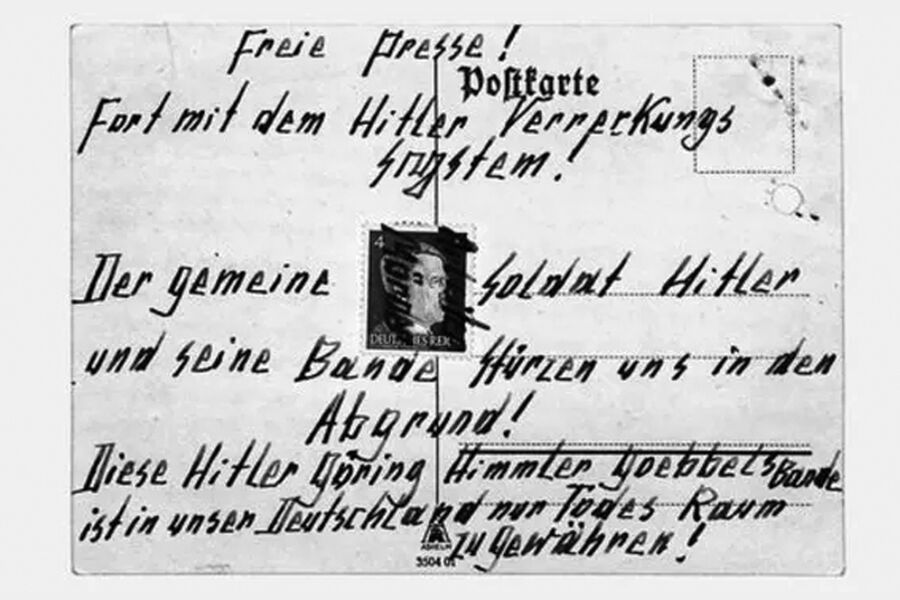 Freie Presse!
Postkarte
Fort mit dem Hitler Verreckungs
system!
4
Der gemeine Soldat Hitler
und seine Bande stürzen uns in den
Abgrund!
Diese Hitler Göring Himmler Goebbels Bande
ist in unser Deutschland nur Todes Raum
zu gewähren!
3504 01